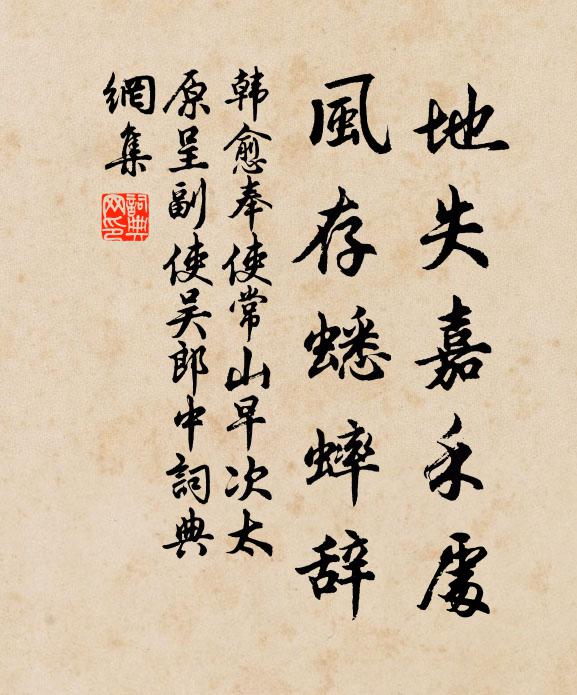 地失嘉禾處
風存蟋蟀辞
韩愈奉使常山早次太
原呈副使吴郎中詞典
網集
詞典
网印